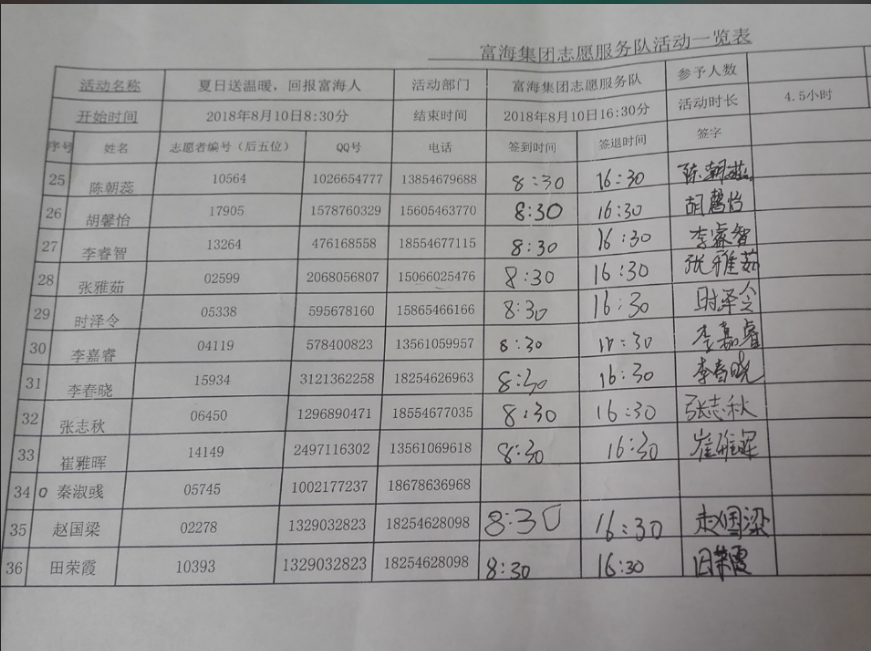 富海集团志愿服务队活动一览表
活动名称 夏日送温暖，回报富海人 活动部门 富海集团志愿服务队 参予人数
开始时间 2018年8月10日8:30分 结束时间 2018年8月10日16:30分 活动时长 4.5小时
序号 姓名 志愿者编号（后五位） QQ号 电话 签到时间 签退时间 签字
25 陈朝蕊 10564 1026654777 13854679688 8:30 16:30 陈朝蕊
26 胡馨怡 17905 1578760329 15605463770 8:30 16:30 胡馨怡
27 李睿智 13264 476168558 18554677115 8:30 16:30 李睿智
28 张雅茹 02599 2068056807 15066025476 8:30 16:30 张雅茹
29 时泽令 05338 595678160 15865466166 8:30 16:30 时泽令
30 李嘉睿 04119 578400823 13561059957 8:30 16:30 李嘉睿
31 李春晓 15934 3121362258 18254626963 8:30 16:30 李春晓
32 张志秋 06450 1296890471 18554677035 8:30 16:30 张志秋
33 崔雅晖 14149 2497116302 13561069618 8:30 16:30 崔雅晖
34 秦淑彧 05745 1002177237 18678636968
35 赵国梁 02278 1329032823 18254628098 8:30 16:30 赵国梁
36 田荣霞 10393 1329032823 18254628098 8:30 16:30 田荣霞